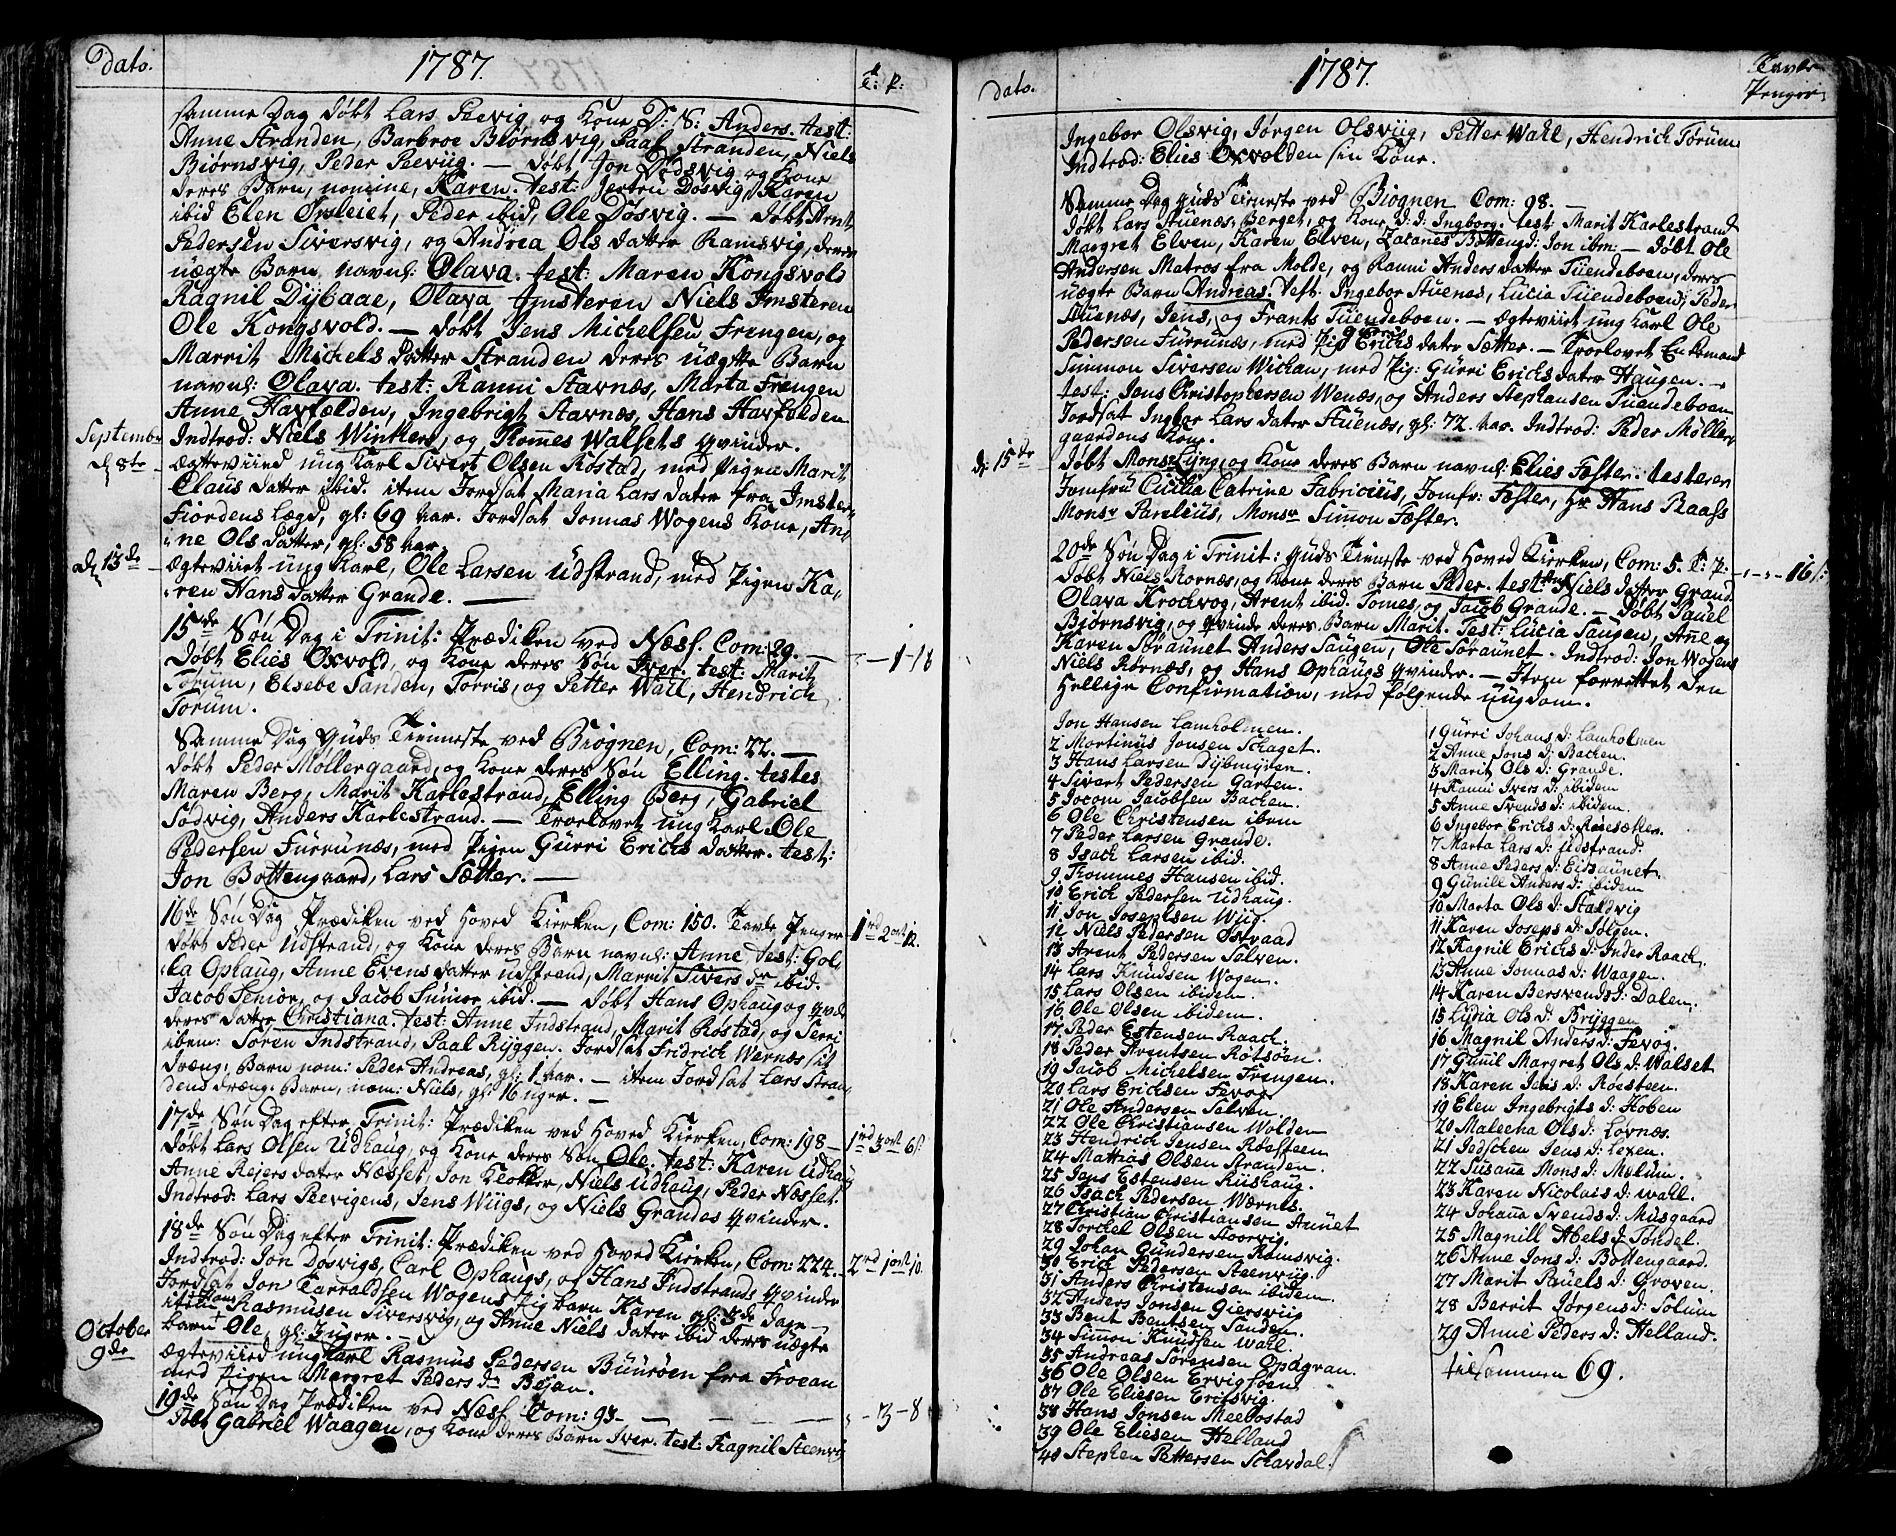 Dato. 1787. T: P:
samme Dag døbt Lars Reevig og Kone D: S: Anders. test:
Anne Stranden, Barbroe Biørnsvig, Paal Stranden, Niels
Biørnsvig, Peder Reeviig. — Døbt Jon Døsvig og Kone
deres Barn, nomine, Karen. test: Døsvig, Karen
ibid Elen Ørsleiet, Peder ibid, Ole Døsvig. — Døbt Arnt
Pedersen Siversvig, og Andrea Ols datter Ramsvig, deres
uægte Barn navnl: Olava. test: Maren Kongsvold
Ragnil Dybaae, Olava Imsteren Niels Imsteren
Ole Kongsvold. — Døbt Jens Michelsen Frengen, og
Marrit Michels Datter Stranden deres uægte Barn
navnl: Olava. test: Ranni Starnæs, Marta Frengen
Anne Harfalden, Ingebrigt Starnæs, Hans Harfalden
Indtrod: Niels Winthers, og Thomes Walsets qvinder.
September d 8te
ægteviied ung Karl Sivert Olsen Rostad, med Pigen Marit
Claus datter ibid. item Jordsat Maria Lars dater fra Imster-
Fiordens Lægd, gl: 69 aar. Jordsat Jonnas Wogens Kone, An-
ne Ols datter, gl: 58 aar.
d 13de
ægteviiet ung Karl, Ole Larsen Udstrand, med Pigen Ka-
ren Hans datter Grande. —
15de Søn Dag i Trinit: Prædiken ved Næss. Com: 29. — 1-18
Døbt Elies Oxvold, og Kone deres Søn Iver. test: Marit
Torum, Elsebe Sanden, Torris, og Petter Wall, Hendrich
Torum.
Samme Dag Guds Tienneste ved Biognen, Com: 22. —
Døbt Peder Møllergaard, og Kone deres Søn Elling. testes
Maren Berg, Marit Karlestrand, Elling Berg, Gabriel
Sødvig, Anders Karlestrand. — Troelovet ung Karl Ole
Pedersen Furrunæs, med Pigen Gurri Erichs datter. test:
Jon Bottengaard, Lars Sætter. —
16de Søn Dag Prædiken ved Hoved Kierken, Com: 150. Tavle Penger 1rd 2ort 12.
Døbt Peder Udstrand, og Kone deres Barn navnl: Anne test: Gol-
ka Ophaug, Anne Evens datter Udstrand, Marrit Sivers dr ibid.
Jacob Senior, og Jacob Junior ibid. — Døbt Hans Ophaug og qvinde
deres datter Christiana. test: Anne Indstrand, Marit Rostad, og Serri
ibem: Søren Indstrand, Paal Ryggen. Jordsat Fridrich Wernæs sit
dræng Barn nom: Peder Andreas, gl: 1 aar. — item Jordsat Lars Stran-
dens dræng Barn, nom: Niels, gl: 16 uger. —
17de Søn Dag efter Trinit: Prædiken ved Hoved Kierken, Com: 198 — 1rd 3ort 6s.
Døbt Lars Olsen Udhaug, og Kone deres Søn Ole. test: Karen Udhaug
Anne Reiersdater Næsset, Jon Klokker, Niels Udhaug, Peder Næsset.
Indtrod: Lars Reevigens, Jens Wiigs, og Niels Grandes qvinder.
18de Søn Dag efter Trinit: Prædiken ved Hoved Kierken, Com: 224. 2rd 1ort 10.
Indtrod: Jon Døsvigs, Carl Ophaugs, og Hans Indstrands qvinder
Jordsat Jon Tarraldsen Wogens Pig Barn Karen gl: 3de dage —
item Hans Rasmusen Siversvig, og Anne Niels dater ibid deres uægte
barn Ole, gl: 3 uger. —
October 9de
ægteviied ung Karl Rasmus Pedersen Buurøen fra Froean
med Pigen Margret Peders dr Bejan.
19de Søn Dag Prædiken ved Næss. Com: 93 — — — — 3-8
Døbt Gabriel Waagan, og Kone deres Barn Iver. test: Ragnil Steenvig
dato. 1787. Tavle Penger
Ingebor Olsvig, Jørgen Olsviig, Petter Wahl, Hendrich Torum
Indtrod: Elies Oxvolden sin Kone.
Samme Dag Guds Tieneste ved Biognen Com: 98. —
Døbt Lars Stuenæs, Berget, og Kone d: d: Ingborg. test: Marit Karlestrand
Margret Elven, Karen Elven, Zacanes Botteng: Jon ibm: — Døbt Ole
Andersen Matros fra Molde, og Ranni Anders datter Tuendeboen, deres
uægte Barn Andreas. test: Ingebor Stuenes, Lucia Tuendeboen, Peder
Stuenæs, Jens, og Frants Tuendeboen. — ægteviiet ung Karl Ole
Pedersen Furrunæs, med Pig Gurri Erichs dater Sætter. — Troelovet Enkemand
Simmon Siversen Wichan, med Pig: Gurri Erichs dater Haugen. —
test: Jens Christophersen Wenæs, og Anders Stephansen Tuendeboen
Jordsat Ingbor Lars dater Stuenæs, gl: 72 aar. Indtrod: Peder Møller-
gaardens Kone.
d: 15de
Døbt Monsr Lyng, og Kone deres Barn navnl: Elies Foster. testerer
Jomfru Cicilia Catrine Fabricius, Jomfr: Foster, Hr Hans Raass
Monsr Parelius, Monsr Simon Foster.
20de Søn Dag i Trinit: Guds Tieneste ved Hoved Kierken, Com: 5. T: P: 16s:
Døbt Niels Rørnæs, og Kone deres Barn Peder. test Niels datter Grande
Olava Krochvog, Arent ibid. Tomes, og Jacob Grande. — Døbt Paüel
Biørnsvig, og qvinde deres Barn Marit. Test: Lucia Saugen, Anne og
Karen Søraunet Anders Saugen, Ole Søraunet. Indtrod: Jon Wogens
Niels Rørnæs, og Hans Ophaugs qvinder. — Item forrettet den
Hellige Confirmation, med følgende ungdom.
Jon Hansen Lamholmen.
2 Martinus Jonsen Schaget.
3 Hans Larsen Dybmyren.
4 Sivert Pedersen Garten.
5 Jocom Jacobsen Bachen.
6 Ole Christensen ibem
7 Peder Larsen Grande.
8 Isach Larsen ibid.
9 Thommes Hansen ibid.
10 Erich Pedersen Udhaug.
11 Jon Josephsen Wiig.
12 Niels Pedersen Østraad
13 Arent Pedersen Selven.
14 Lars Knudsen Wogen.
15 Lars Olsen ibidem.
16 Ole Olsen ibidem.
17 Peder Estensen Raach.
18 Peder Arentsen Røtsøen.
19 Jacob Michelsen Frengen.
20 Lars Erichsen Fevog
21 Ole Andersen Selven.
22 Ole Christiansen Wolden
23 Hendrich Jensen Røesteen
24 Mattias Olsen Stranden.
25 Jens Estensen Riishaug.
26 Isach Pedersen Wærnes.
27 Christian Christiansen Aunet
28 Torchel Olsen Stoorvig.
29 Johan Gundersen Ramsvig.
30 Erich Pedersen Steenviig.
31 Anders Christensen ibidem.
32 Anders Jonsen Giersviig
33 Bent Bentsen Sanden.
34 Simmon Knudsen Wahl.
35 Andreas Sørensen Opagran.
36 Ole Olsen Ervigsøen.
37 Ole Eliesen Ericsvig.
38 Hans Jonsen Meebostad
39 Ole Eliesen Helland
40 Stephen Pettersen Schardal.
1 Gurri Johans d: Lamholmen
2 Anne Jons d: Bachen.
3 Marit Ols d: Grande.
4 Ranni Ivers d: ibidem
5 Anne Svends d: ibidem.
6 Ingebor Erichs d: Røesæther.
7 Marta Lars d: Udstrand.
8 Anne Peders d: Eidsaunet.
9 Gunill Anders d: ibidem
10 Marta Ols d: Staldvig
11 Karen Joseps d: Solgen.
12 Ragnil Erichs d: Inder Raach.
13 Anne Jonnas d: Waagen.
14 Karen Bersvends d: Dalen.
15 Lydia Ols d: Bryggen
16 Magnil Anders d: Fevog.
17 Gunil Margret Ols d: Walset
18 Karen Jens d: Roesteen.
19 Elen Ingebrigts d: Hoben
20 Maleena Ols d: Lovnæs.
21 Jedschen Jens d: Lexen.
22 Susanna Mons d: Melum.
23 Karen Nicolais d: wahl.
24 Johanna Svends d: Musgaard
25 Magnill Abels d: Tøndel.
26 Anne Jons d: Bottengaard.
27 Marit Pauels d: Groven.
28 Berrit Jørgens d: Solum
29 Anne Peders d: Helland.
tilsammen 69.